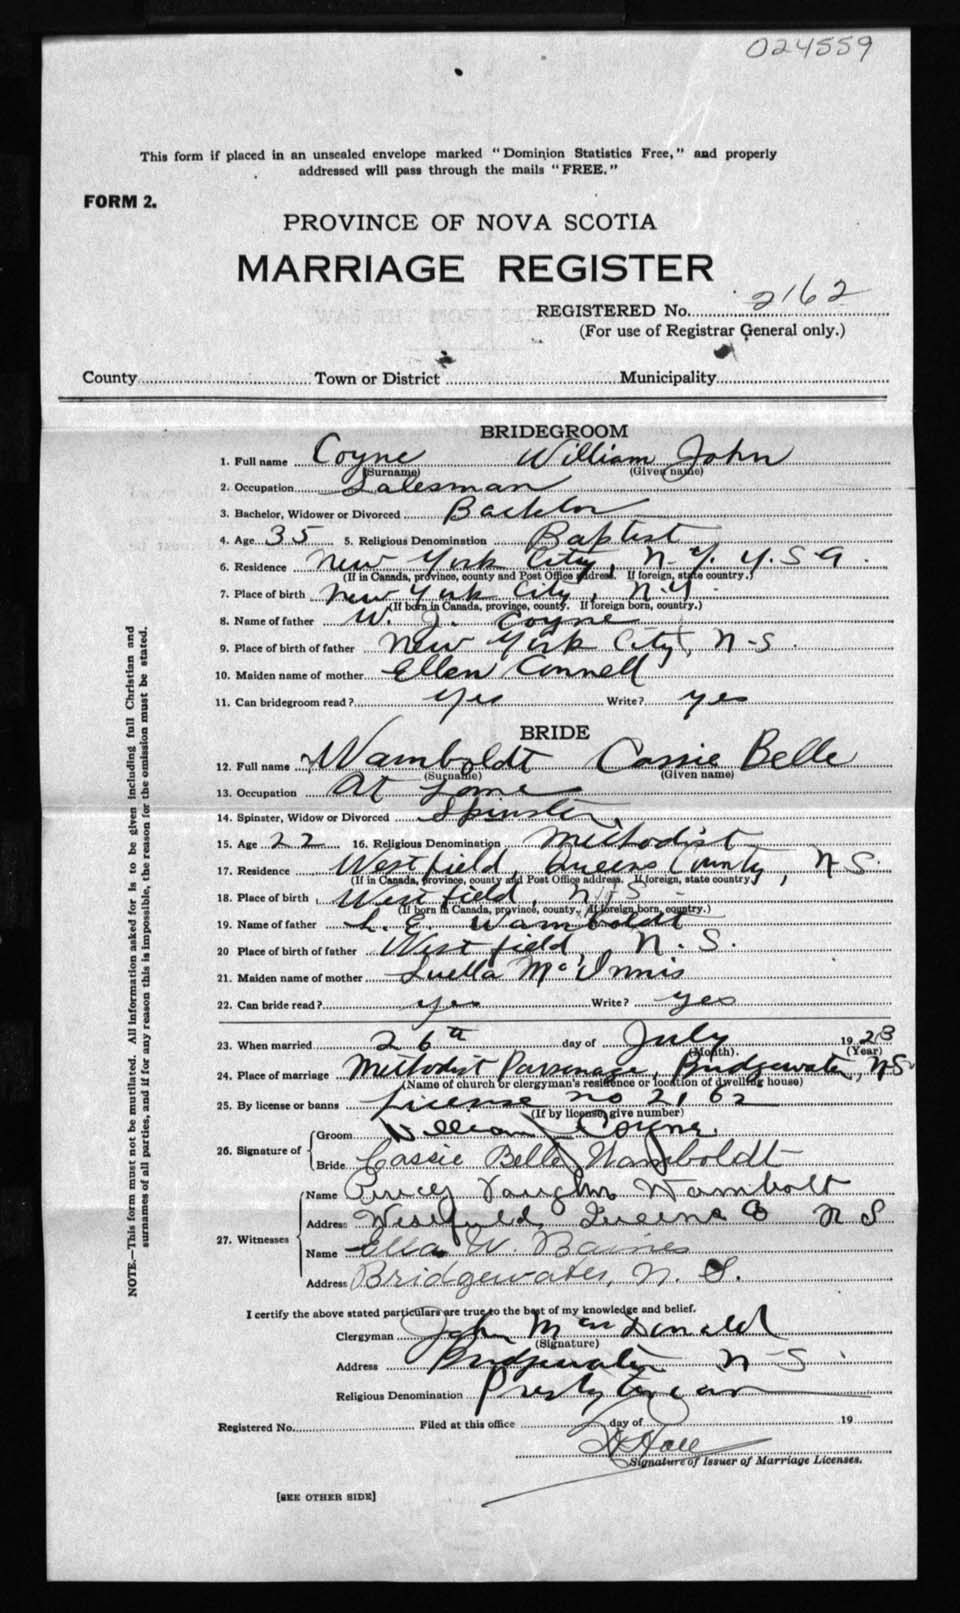 024559
This form if placed in an unsealed envelope marked "Dominion Statistics Free," and properly
addressed will pass through the mails "FREE."
FORM 2.
PROVINCE OF NOVA SCOTIA
MARRIAGE REGISTER
REGISTERED No. 2162
(For use of Registrar General only.)
County Town or District Municipality
BRIDEGROOM
1. Full name Coyne William John
(Surname) (Given name)
2. Occupation Salesman
3. Bachelor, Widower or Divorced Bachelor
4. Age 35 5. Religious Denomination Baptist
6. Residence New York City, N.Y. U.S.A.
(If in Canada, province, county and Post Office address. If foreign, state country.)
7. Place of birth New York City, N.Y.
(If born in Canada, province, county. If foreign born, country.)
8. Name of father W. J. Coyne
9. Place of birth of father New York City, N-S.
10. Maiden name of mother Ellen Connell
11. Can bridegroom read? yes Write? yes
BRIDE
12. Full name Wamboldt Cassie Belle
(Surname) (Given name)
13. Occupation At home
14. Spinster, Widow or Divorced Spinster
15. Age 22 16. Religious Denomination Methodist
17. Residence Westfield, Queens County, N.S.
(If in Canada, province, county and Post Office address. If foreign, state country.)
18. Place of birth Westfield, N.S
(If born in Canada, province, county. If foreign born, country.)
19. Name of father L. E. Wamboldt
20 Place of birth of father West field, N.S.
21. Maiden name of mother Luella McInnis
22. Can bride read? yes Write? yes
23. When married 26th day of July 1923
(Month). (Year)
24. Place of marriage Methodist Parsonage, Bridgewater, N.S.
(Name of church or clergyman's residence or location of dwelling house)
25. By license or banns License no 2162
(If by license, give number)
26. Signature of Groom William J Coyne.
Bride Cassie Belle Wamboldt
27. Witnesses Name Percy Vaughn Wambolt
Address Westfield, Queens Co N S
Name Ella W. Baines
Address Bridgewater, N. S.
I certify the above stated particulars are true to the best of my knowledge and belief.
Clergyman John MacDonald
(Signature)
Address Bridgewater N-S.
Religious Denomination Presbyterian
Registered No. Filed at this office day of 19
Signature of Issuer of Marriage Licenses.
[SEE OTHER SIDE]
NOTE.—This form must not be mutilated. All information asked for is to be given including full Christian and
surnames of all parties, and if for any reason this is impossible, the reason for the omission must be stated.